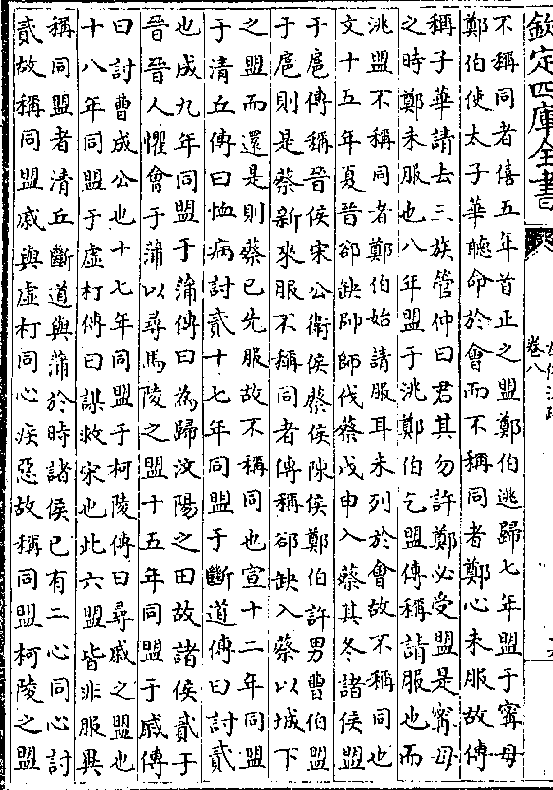 欽定四庫全書
卷八
不稱同者僖五年首止之盟鄭伯逃歸七年盟于甯母
鄭伯使太子華聽命於會而不稱同者鄭心未服故傳
稱子華請去三族管仲曰君其勿許鄭必受盟是甯母
之時鄭未服也八年盟于洮鄭伯乞盟傳稱請服也而
洮盟不稱同者鄭伯始請服耳未列於會故不稱同也
文十五年夏晉郤缺帥師伐蔡戊申入蔡其冬諸侯盟
于扈傳稱晉侯宋公衛侯蔡侯陳侯鄭伯許男曹伯盟
于扈則是蔡新來服不稱同者傳稱郤缺入蔡以城下
之盟而還是則蔡已先服故不稱同也宣十二年同盟
于清丘傳曰恤病討貳十七年同盟于斷道傳曰討貳
也成九年同盟于蒲傳曰為歸汶陽之田故諸侯貳于
晉晉人懼會于蒲以尋馬陵之盟十五年同盟于戚傳
曰討曹成公也十七年同盟于柯陵傳曰尋戚之盟也
十八年同盟于虛朾傳曰謀救宋也此六盟皆非服異
稱同盟者清丘斷道與蒲於時諸侯已有二心同心討
貳故稱同盟戚與虛朾同心疾惡故稱同盟柯陵之盟